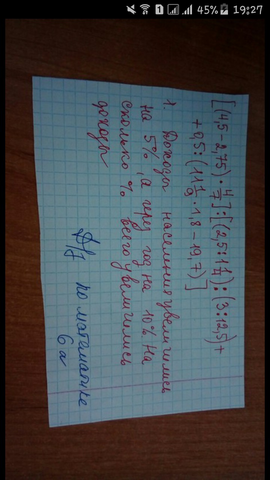 45% 19:27
[(4,5 - 2,75) · 4/7] : [(2,5 : 1 1/4) : (3 : 12,5) +
+ 0,5 : (11 1/9 · 1,8 - 19,7)]
1. Доходы населения увеличились
на 5%, а через год на 10%. На
сколько % всего увеличились
доходы
Д/з по математике
6а